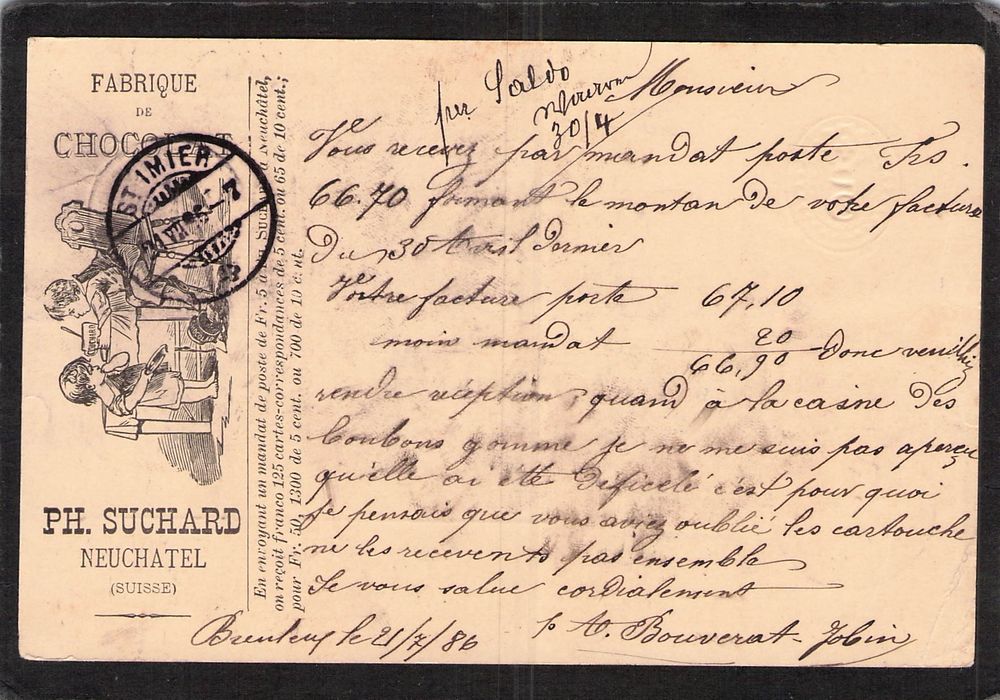 FABRIQUE
DE
CHOCOLAT
ST IMIER
PH. SUCHARD
NEUCHATEL
(SUISSE)
En envoyant un mandat de poste de Fr. 5 à Suchard à Neuchâtel,
on reçoit franco 125 cartes-correspondances de 5 cent. ou 65 de 10 cent.;
pour Fr. 50, 1300 de 5 cent. ou 700 de 10 cent.
per Saldo
30/4
Monsieur
Vous recevez par mandat poste Frs.
66.70 formant le montan de votre facture
Du 30 Avril dernier
Vottre facture porte 67,10
moin mandat 20
66,90 donc veuillez
rendre réception, quand à la caisne des
bonbons gomme je ne me suis pas aperçu
qu'elle ai été déficelé c'est pour quoi
je pensais que vous aviez oublié les cartouche
ne les recevents pas ensemble
Je vous salue cordialement
Breuleux le 21/7/86 p A. Bouverat-Jobin